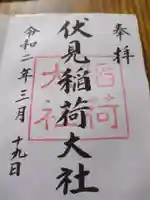 奉拝
伏見稲荷大社
令和二年三月十九日
稲荷
大社